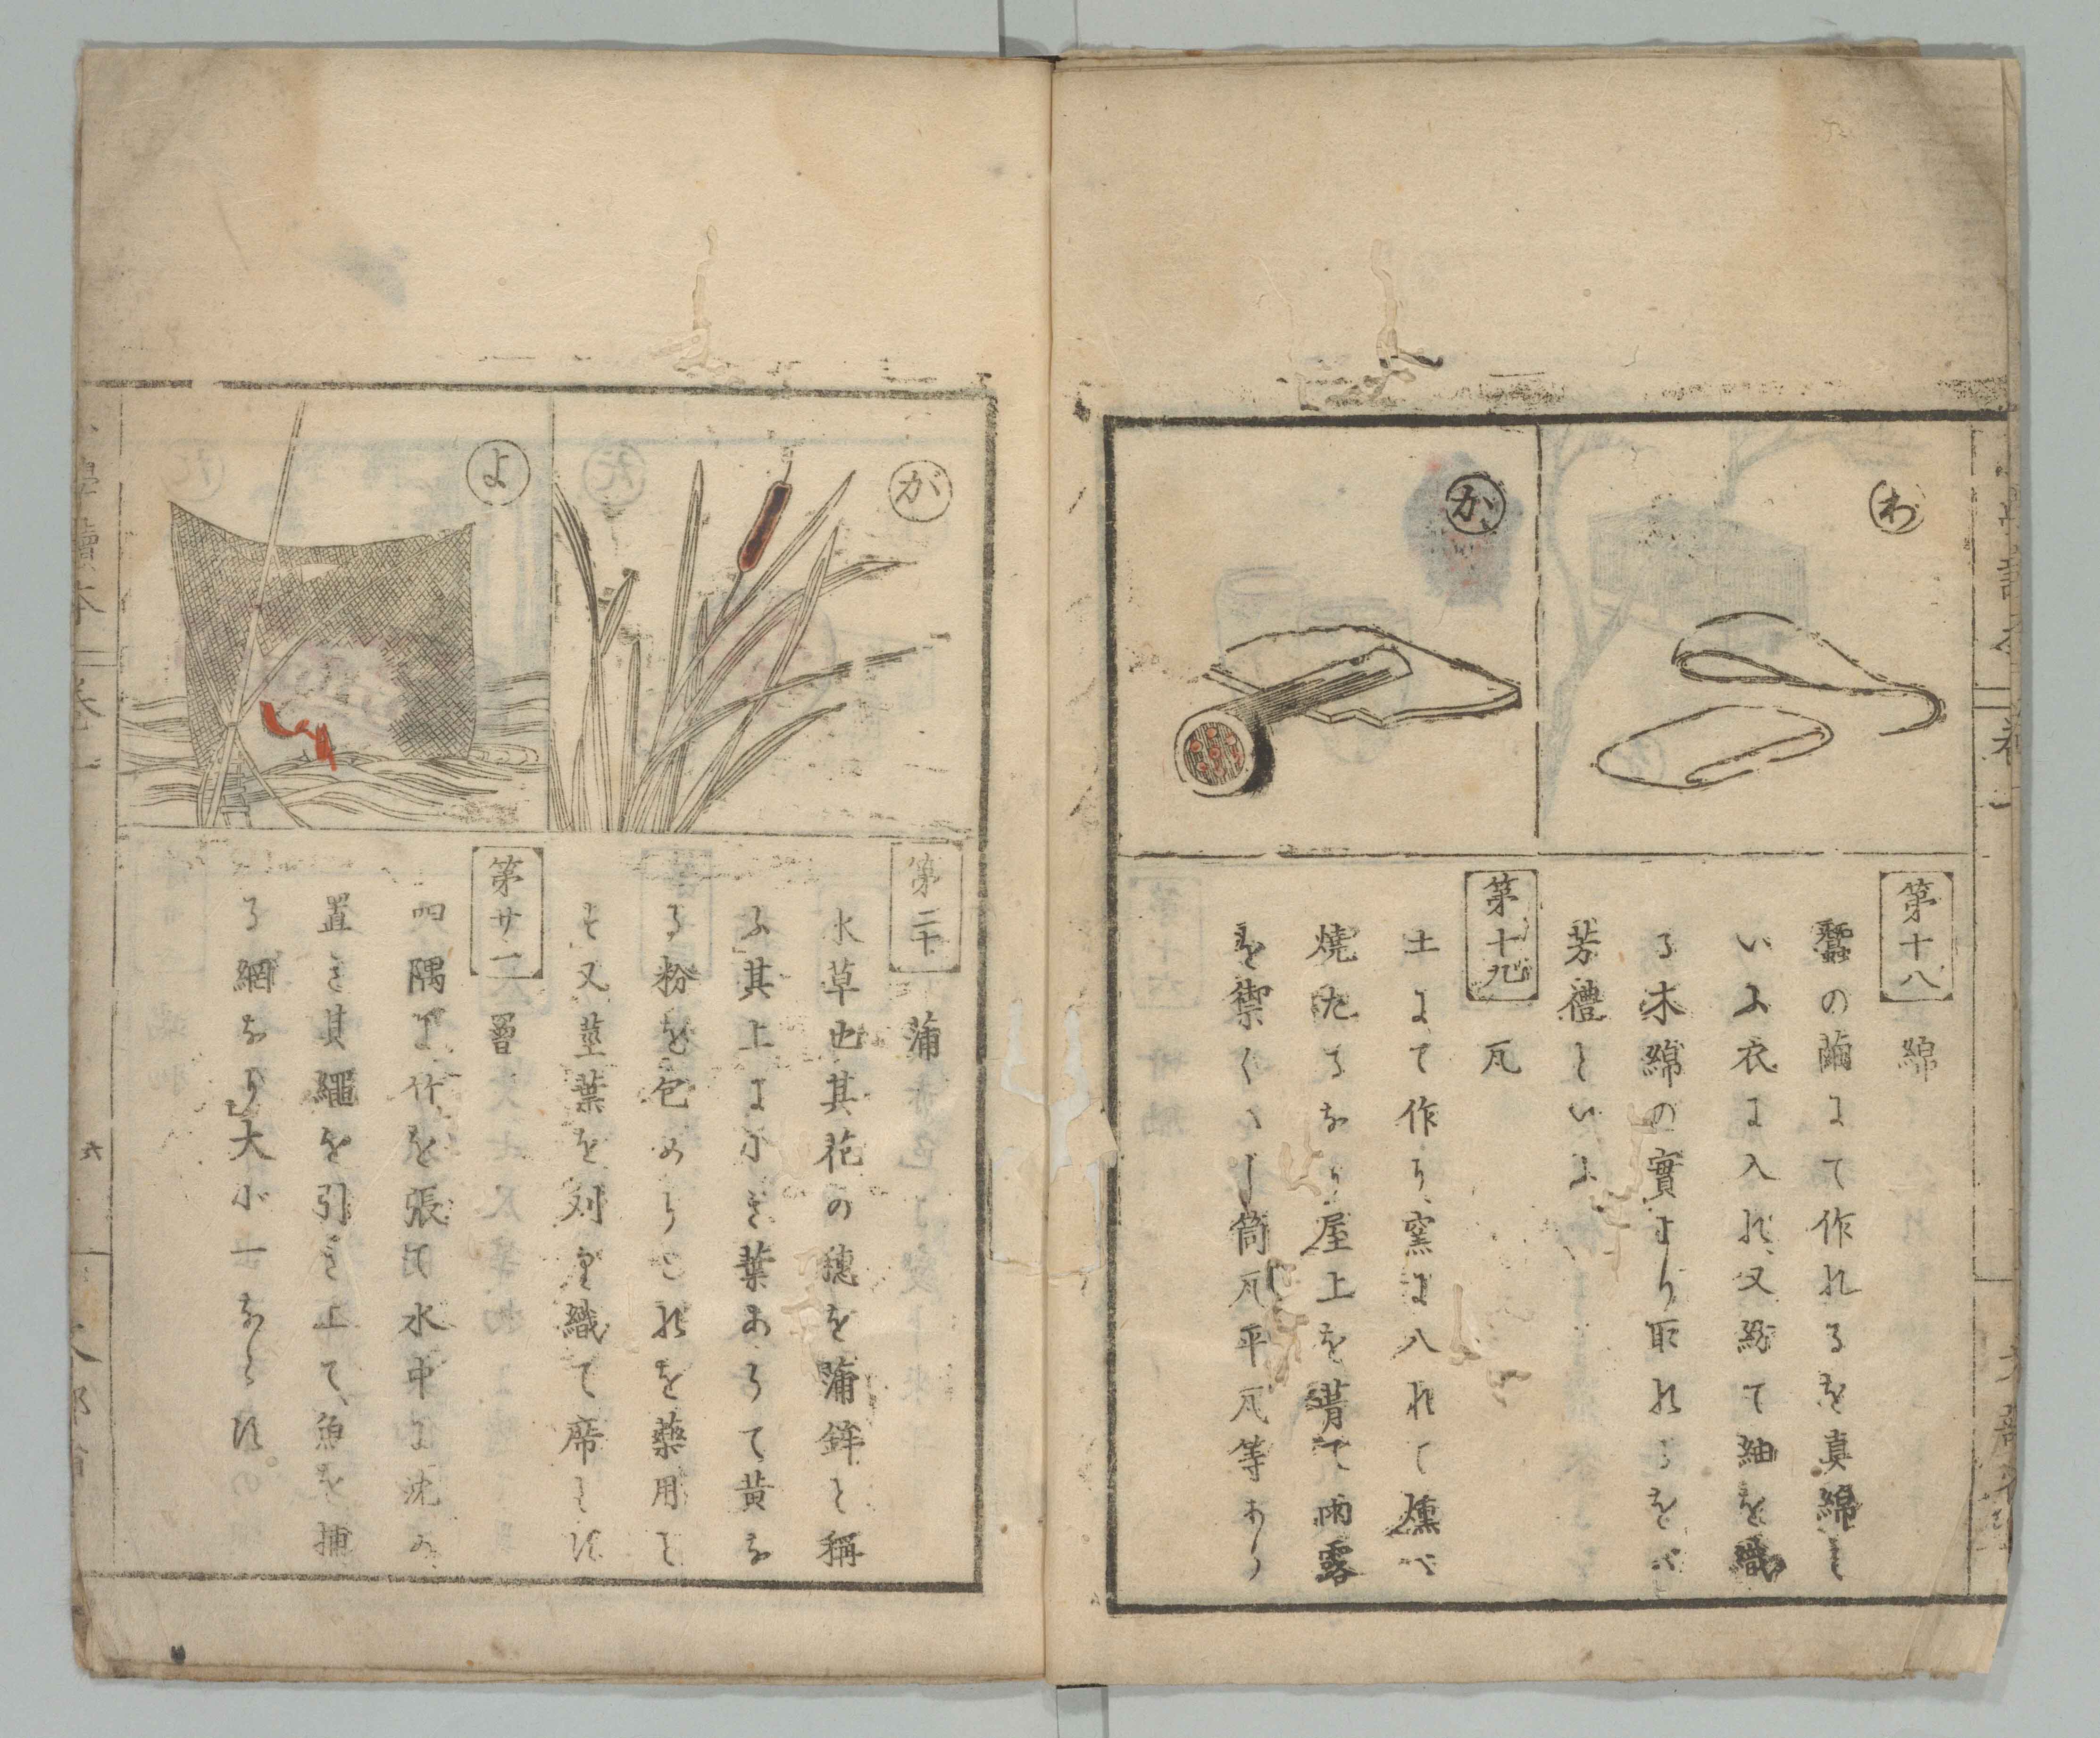 わ
か
第十八 綿
蠶の繭にて作れるを真綿と
いふ衣に入れ、又紡て紬を織
る木綿の實より取れるをば
芳禮といふ
第十九 瓦
土にて作り、窯に入れて燻べ
焼たるなり屋上を葺て雨露
を禦ぐへし筒瓦平瓦等あり
が
よ
第二十 蒲
水草也其花の穂を蒲鉾と稱
ふ其上に小き葉ありて黄な
る粉を包めりこれを藥用と
す又莖葉を刈り織て席とす
第廿一 罾
四隅に竹を張て水中に沈め
置き其繩を引き上て、魚を捕
る網なり」大小一ならず。
六